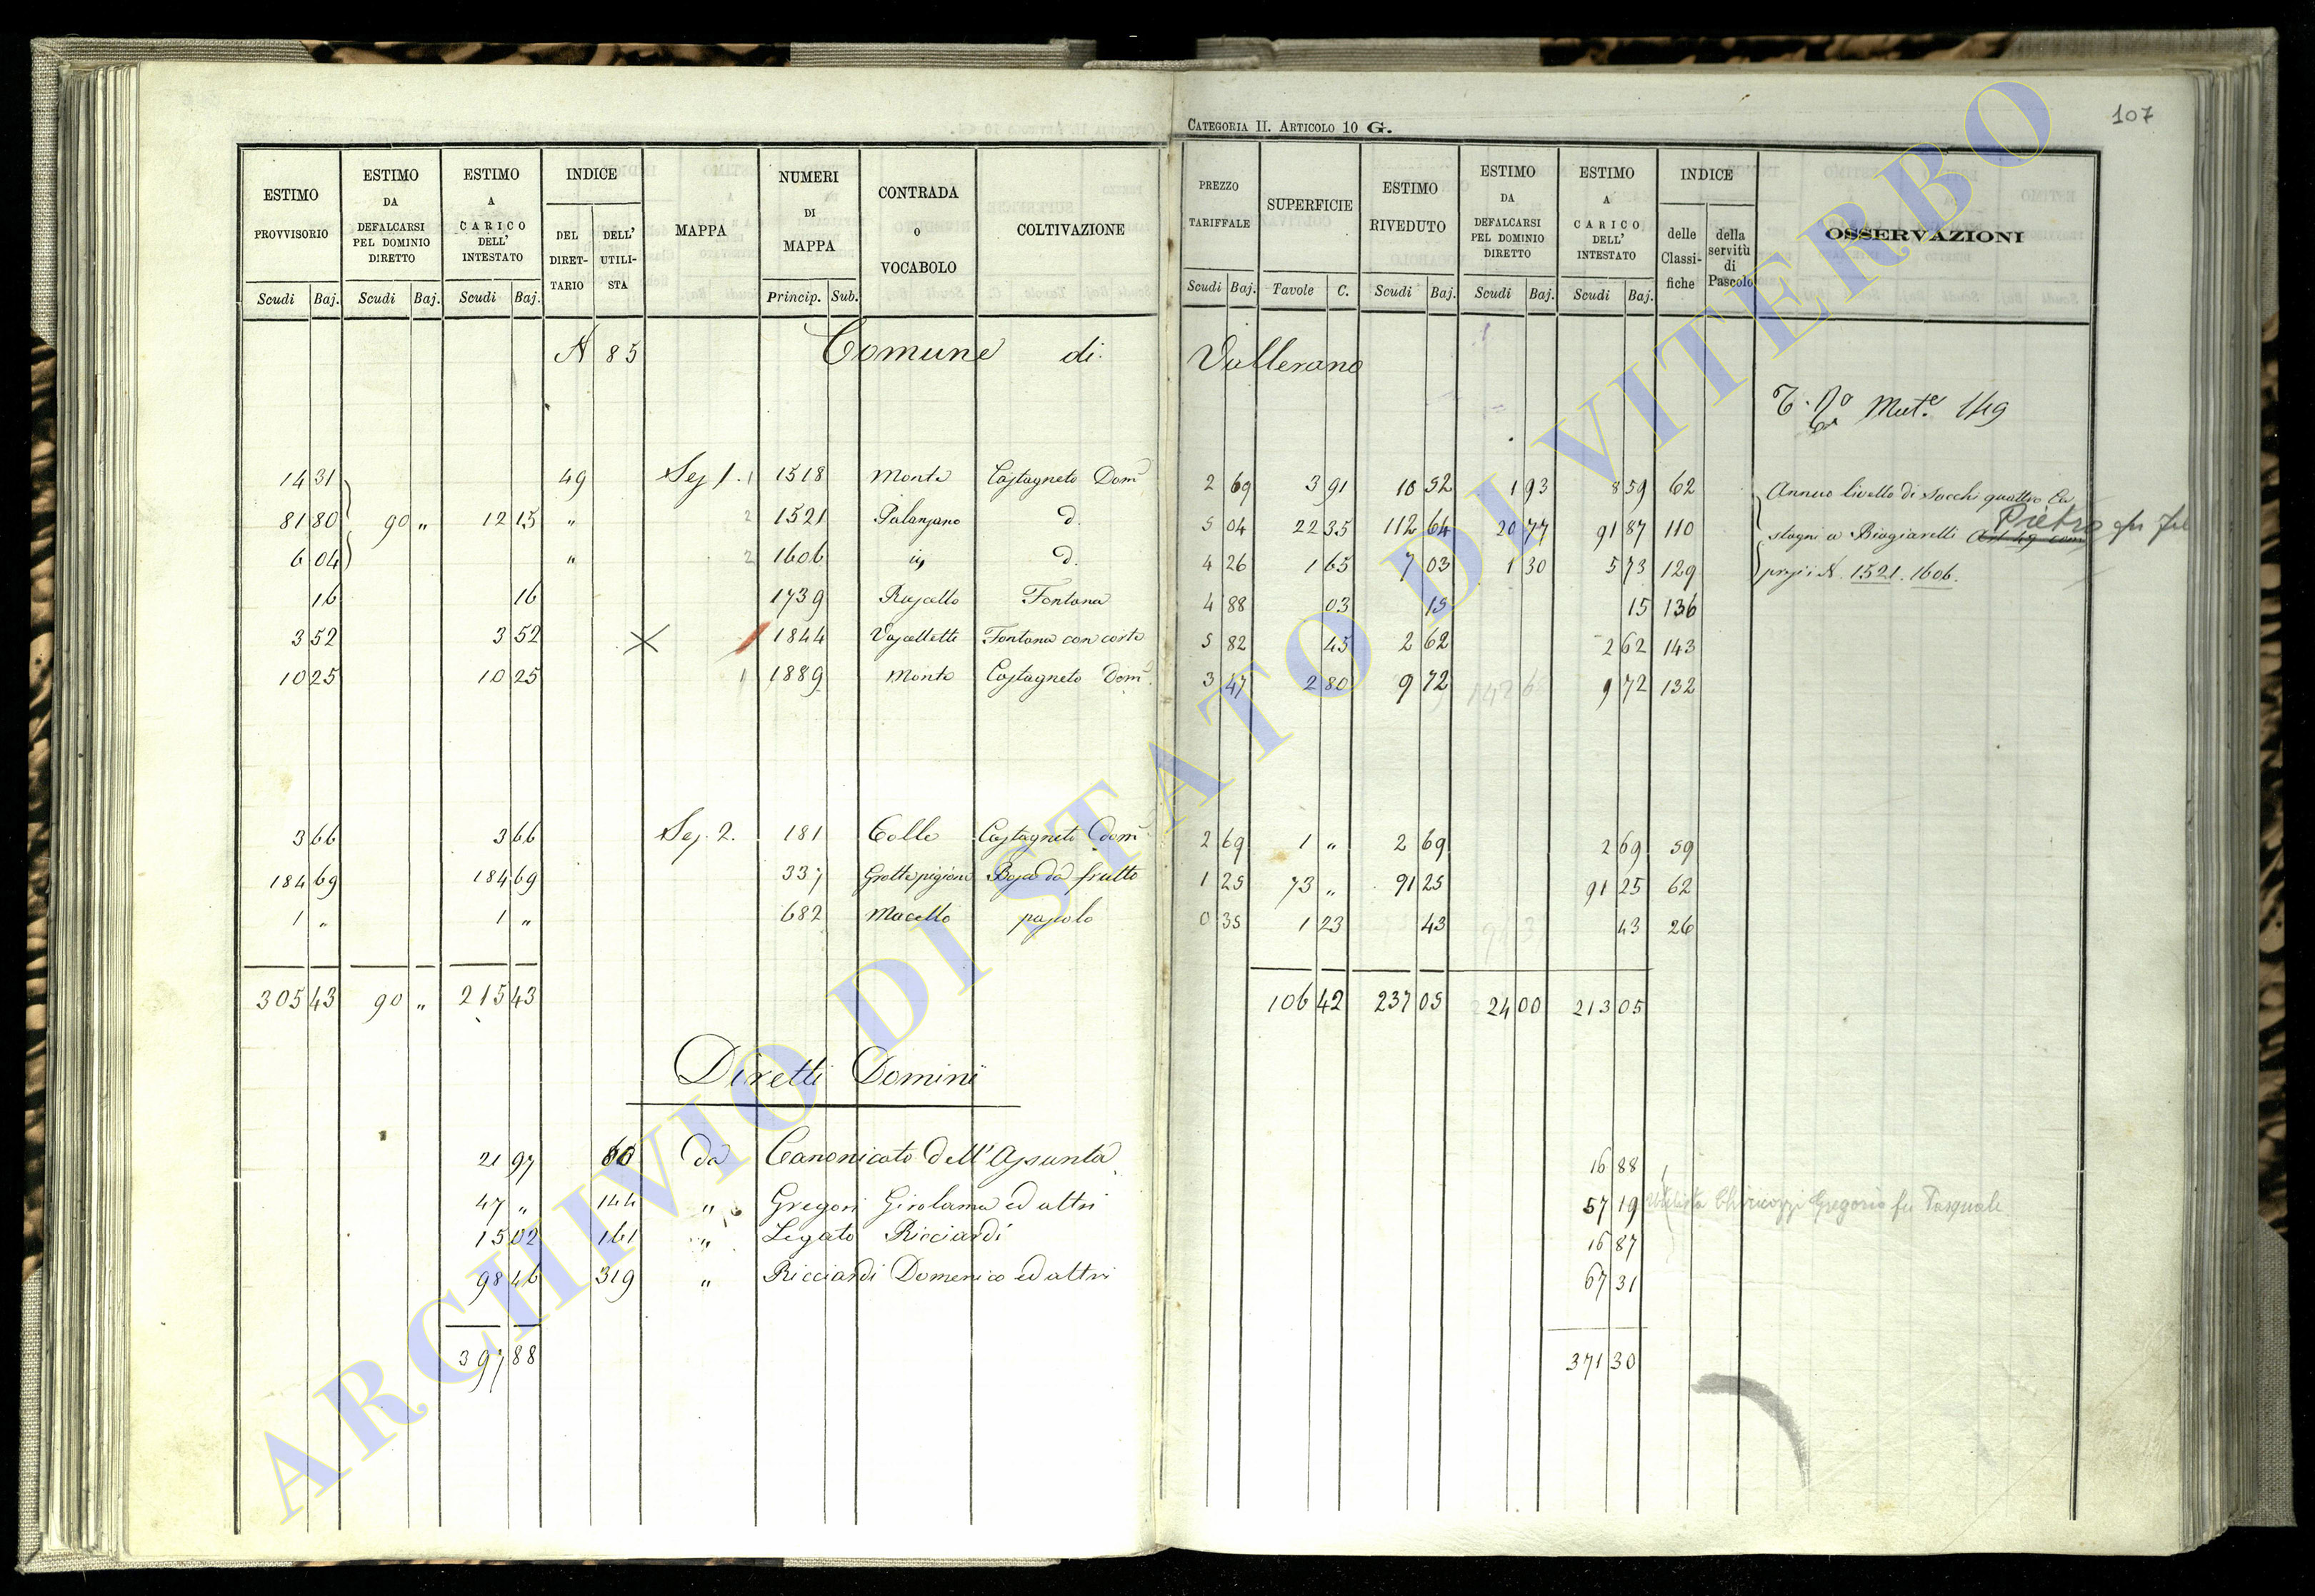 107
CATEGORIA II. ARTICOLO 10 G.
ESTIMO PROVVISORIO | ESTIMO DA DEFALCARSI PEL DOMINIO DIRETTO | ESTIMO A CARICO DELL' INTESTATO | INDICE | MAPPA | NUMERI DI MAPPA | CONTRADA O VOCABOLO | COLTIVAZIONE | PREZZO TARIFFALE | SUPERFICIE | ESTIMO RIVEDUTO | ESTIMO DA DEFALCARSI PEL DOMINIO DIRETTO | ESTIMO A CARICO DELL' INTESTATO | INDICE | OSSERVAZIONI
DEL DIRET-TARIO | DELL' UTILI-STA | delle Classi-fiche | della servitù di Pascolo
Scudi | Baj. | Scudi | Baj. | Scudi | Baj. | Princip. | Sub. | Scudi | Baj. | Tavole | C. | Scudi | Baj. | Scudi | Baj. | Scudi | Baj.
A 85 Comune di Vallerano
Mut.e 149
14 31 | 49 | Sez 1. | 1 | 1518 | Monte | Castagneto Dom | 2 69 | 3 91 | 10 52 | 1 93 | 8 59 | 62 | Annuo livello di sacchi quattro Ca
81 80 | 90 „ | 12 15 | „ | 2 | 1521 | Palanzano | d. | 5 04 | 22 35 | 112 64 | 20 77 | 91 87 | 110 | Pietro
stagni a Biagiarelli
6 04 | „ | 2 | 1606 | d. | 4 26 | 1 65 | 7 03 | 1 30 | 5 73 | 129 | 1521. 1606.
16 | 16 | 1739 | Fontana | 4 88 | 03 | 15 | 15 | 136
3 52 | 3 52 | 1844 | Fontana con corte | 5 82 | 45 | 2 62 | 2 62 | 143
10 25 | 10 25 | 1 | 1889 | Monte | Castagneto Dom | 3 47 | 2 80 | 9 72 | 9 72 | 132
3 66 | 3 66 | Sez. 2. | 181 | Colle | Castagneto Dom | 2 69 | 1 „ | 2 69 | 2 69 | 59
184 69 | 184 69 | 337 | Bosco da frutto | 1 25 | 73 „ | 91 25 | 91 25 | 62
1 „ | 1 „ | 682 | Macello | pascolo | 0 35 | 1 23 | 43 | 43 | 26
305 43 | 90 „ | 215 43 | 106 42 | 237 05 | 24 00 | 213 05
Diretti Domini
21 97 | 60 | da Canonicato dell'Assunta | 16 88
47 „ | 144 | „ Gregori Girolama ed altri | 57 19 | Utilista Chiricozzi Gregorio fu Pasquale
15 02 | 161 | „ Legato Ricciardi | 16 87
98 46 | 319 | „ Ricciardi Domenico ed altri | 67 31
397 88 | 371 30
ARCHIVIO DI STATO DI VITERBO